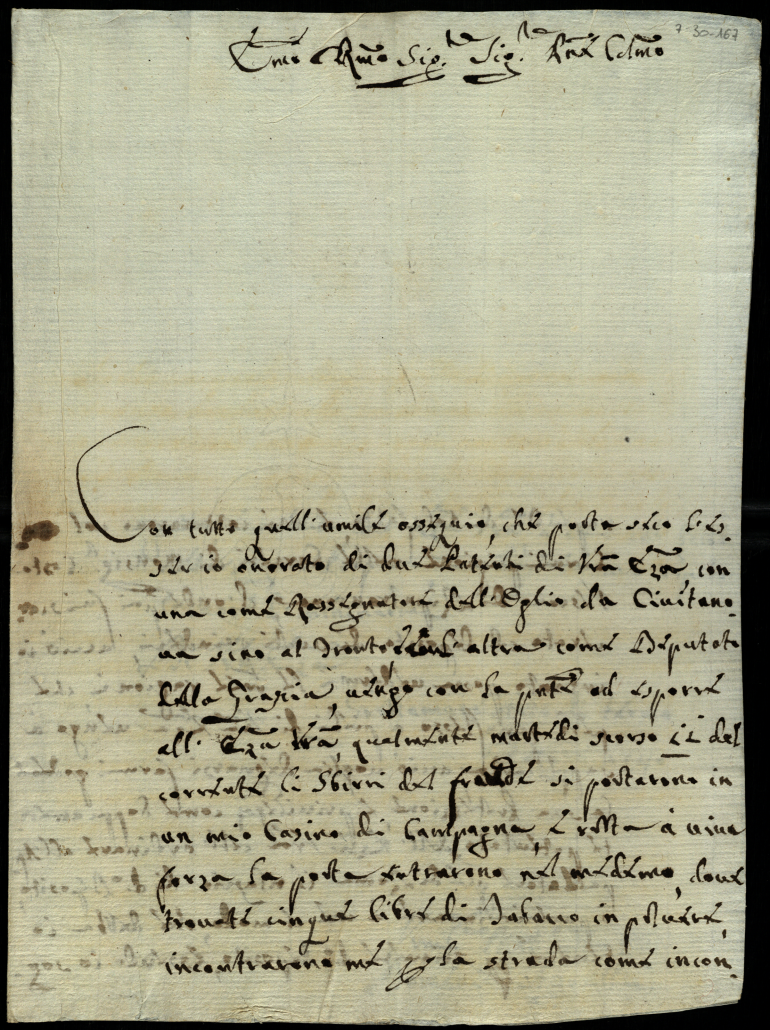 7-30-167
Emo Rmo Sig.re Sig.re Pne Colmo
Con tutto quell'umile ossequio, che porta seco l'es-
ser io onorato di due Patenti di Vra Eza con
una come Rassegnatore dell'Oglio da Civitano-
va sino al Tronto, e altra come Deputato
della Grascia, vengo con la pnte ad esporre
all'Eza Vra, qualmente martedi scorso 11 del
corrente li Sbirri del fraude si portarono in
un mio Casino di Campagna, e rotta à viva
forza la porta entrarono nel medemo, dove
trovate cinque libre di Tabacco in polvere,
incontrarono me p la strada come incon-